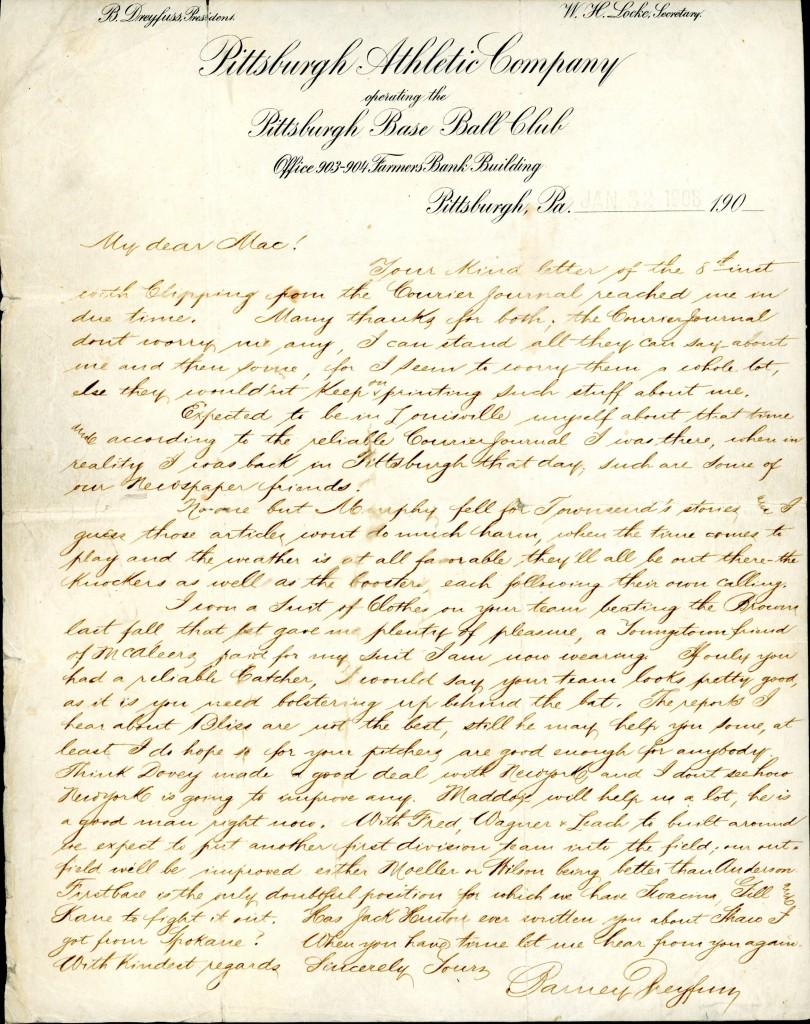 B. Dreyfuss, President.
W. H. Locke, Secretary.
Pittsburgh Athletic Company
operating the
Pittsburgh Base Ball Club
Office 903-904 Farmers Bank Building
Pittsburgh, Pa. JAN 1908 190
My dear Mac!
Your kind letter of the 8th inst
with Clipping from the Courier Journal reached me in
due time. Many thanks for both; the Courier Journal
dont worry me any, I can stand all they can say about
me and then some, for I seem to worry them a whole lot,
else they wouldn't keep on printing such stuff about me.
Expected to be in Louisville myself about that time
and according to the reliable Courier Journal I was there, when in
reality I was back in Pittsburgh that day, such are some of
our Newspaper friends.
No-one but Murphy fell for Townsend's stories and I
guess those articles wont do much harm, when the time comes to
play and the weather is at all favorable they'll all be out there - the
Knockers as well as the boosters, each following their own calling.
I won a Suit of Clothes on your team beating the Browns
last fall that bet gave me plenty of pleasure, a Youngstown friend
of McAleers, paid for my suit I am now wearing. If only you
had a reliable Catcher, I would say your team looks pretty good,
as it is you need bolstering up behind the bat. The reports I
hear about Bliss are not the best, still he may help you some, at
least I do hope so for your pitchers are good enough for anybody.
Think Dovey made a good deal with New York and I dont see how
New York is going to improve any. Maddox will help us a lot, he is
a good man right now. With Fred, Wagner & Leach to built around
we expect to put another first division team into the field; our out-
field will be improved either Moeller or Wilson being better than Anderson
First base is the only doubtful position for which we have Swacina, Gill and
Kane to fight it out. Has Jack Huston ever written you about Shaw I
got from Spokane? When you have time let me hear from you again.
With Kindest regards Sincerely Yours
Barney Dreyfuss